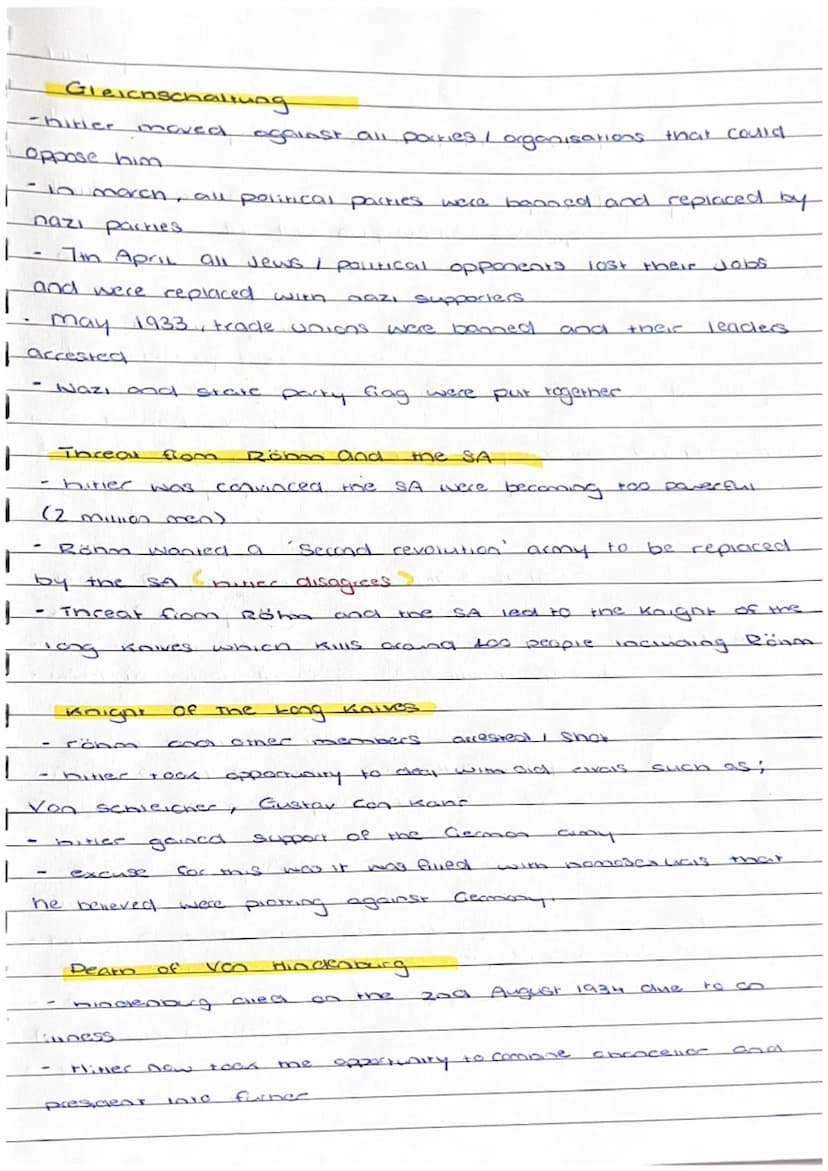 Gleichschaltung
- hitler moved against all parties / organisations that could
oppose him
- in march, all political parties were banned and replaced by
nazi parties
- 7th April all Jews / political opponents lost their Jobs
and were replaced with nazi supporters
- may 1933, trade unions were banned and their leaders
arrested
- Nazi and state party flag were put together
Threat from Röhm and the SA
- hitler was convinced the SA were becoming too powerful
(2 million men)
- Röhm wanted a 'Second revolution' army to be replaced
by the SA (hitler disagrees)
- Threat from Röhm and the SA led to the Knight of the
long knives which kills around 400 people including Röhm
Knight Of The Long Knives
- röhm and other members arrested / shot
- hitler took opportunity to deal with old rivals such as;
Von Schleicher, Gustav Con Kahr
- hitler gained support of the German army
- excuse for this was it was filled with homosexuals that
he believed were plotting against Germany.
Death of Von Hindenburg
- hindenburg died on the 2nd August 1934 due to an
illness
- Hitler now took the opportunity to combine chancellor and
president into furher